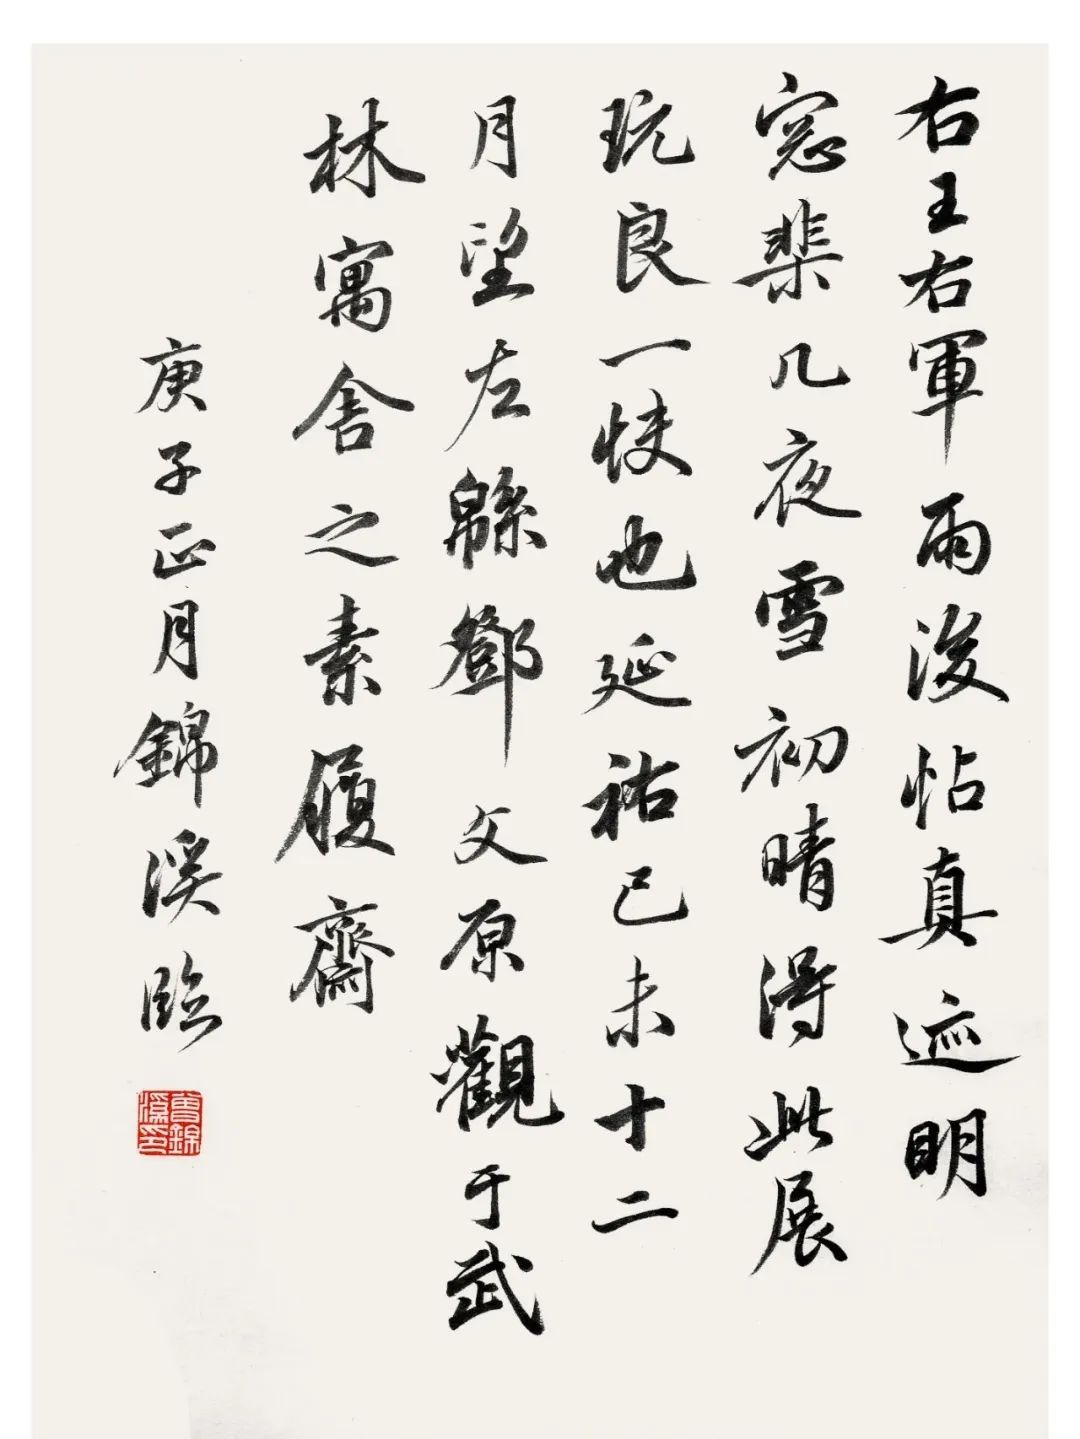 右王右軍雨後帖真迹明
窓棐几夜雪初晴得此展
玩良一快也延祐己未十二
月望左緜鄧文原觀于武
林寓舍之素履齋
庚子正月錦溪臨
曾錦溪印